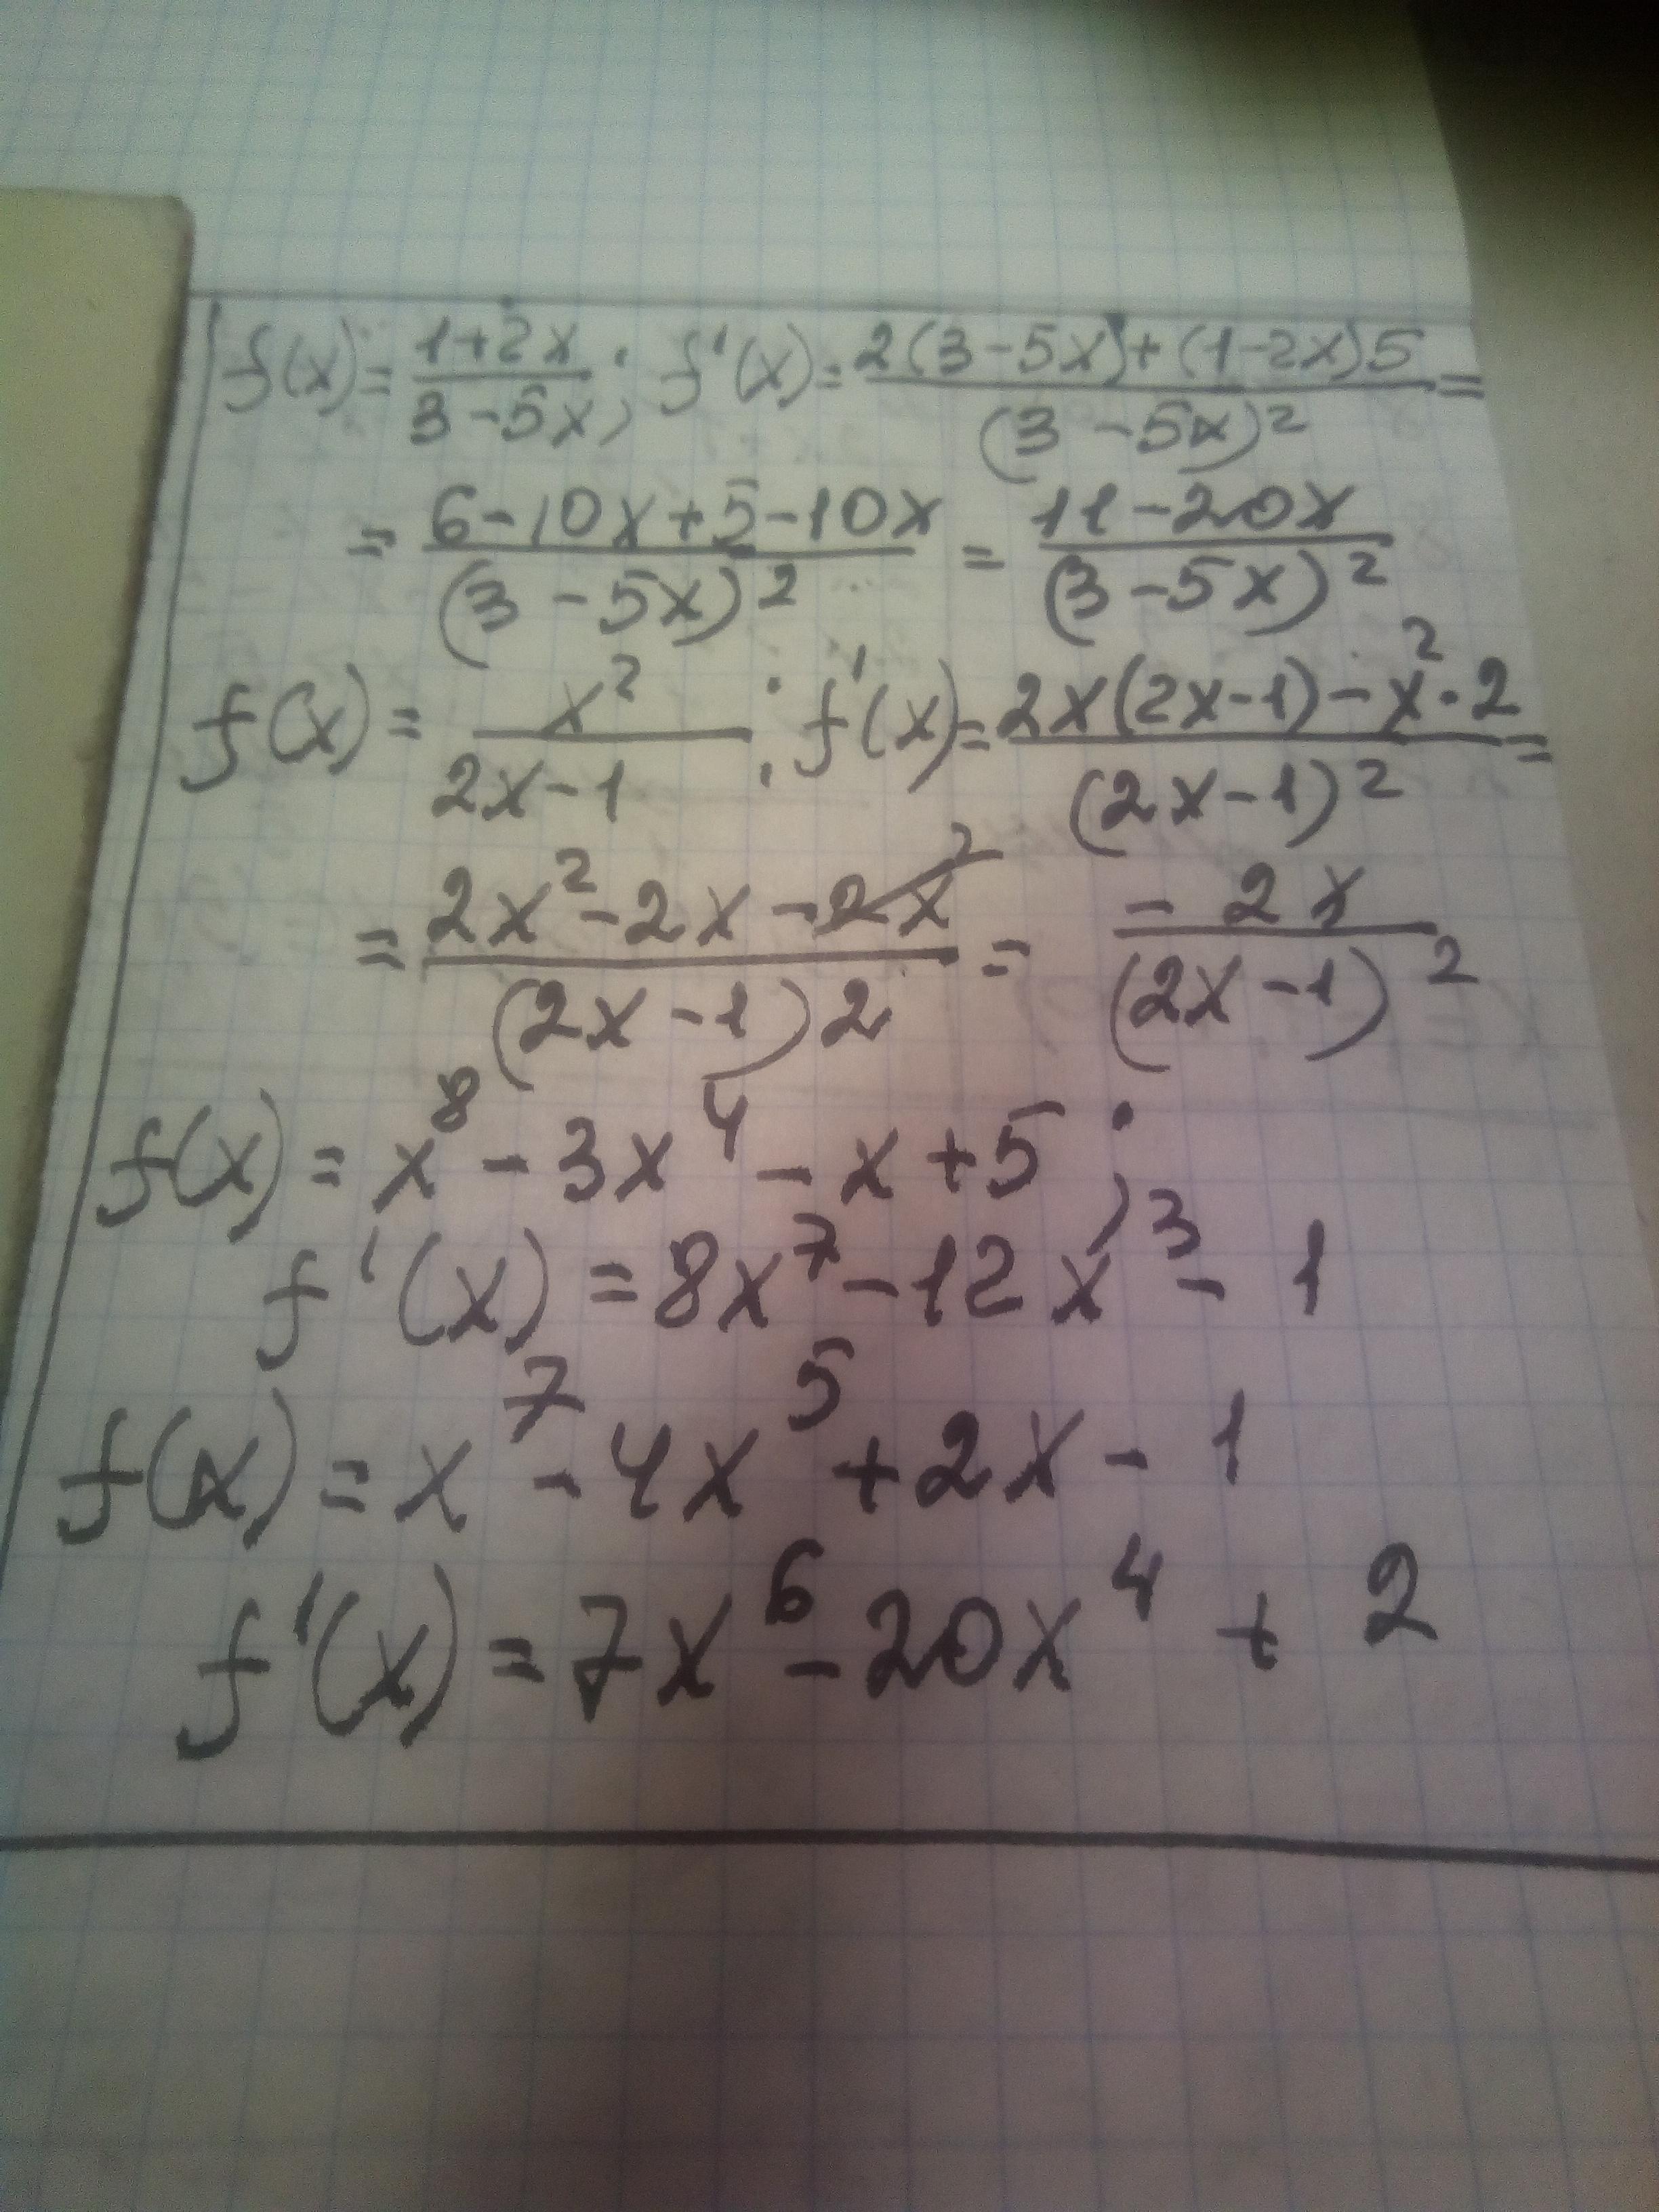 f(x) = (1+2x)/(3-5x); f'(x) = (2(3-5x)+(1-2x)5)/(3-5x)² =
= (6-10x+5-10x)/(3-5x)² = (11-20x)/(3-5x)²
f(x) = x²/(2x-1); f'(x) = (2x(2x-1)-x²·2)/(2x-1)² =
= (2x²-2x-2x²)/(2x-1)2 = (-2x)/(2x-1)²
f(x) = x⁸ - 3x⁴ - x + 5;
f'(x) = 8x⁷ - 12x³ - 1
f(x) = x⁷ - 4x⁵ + 2x - 1
f'(x) = 7x⁶ - 20x⁴ + 2